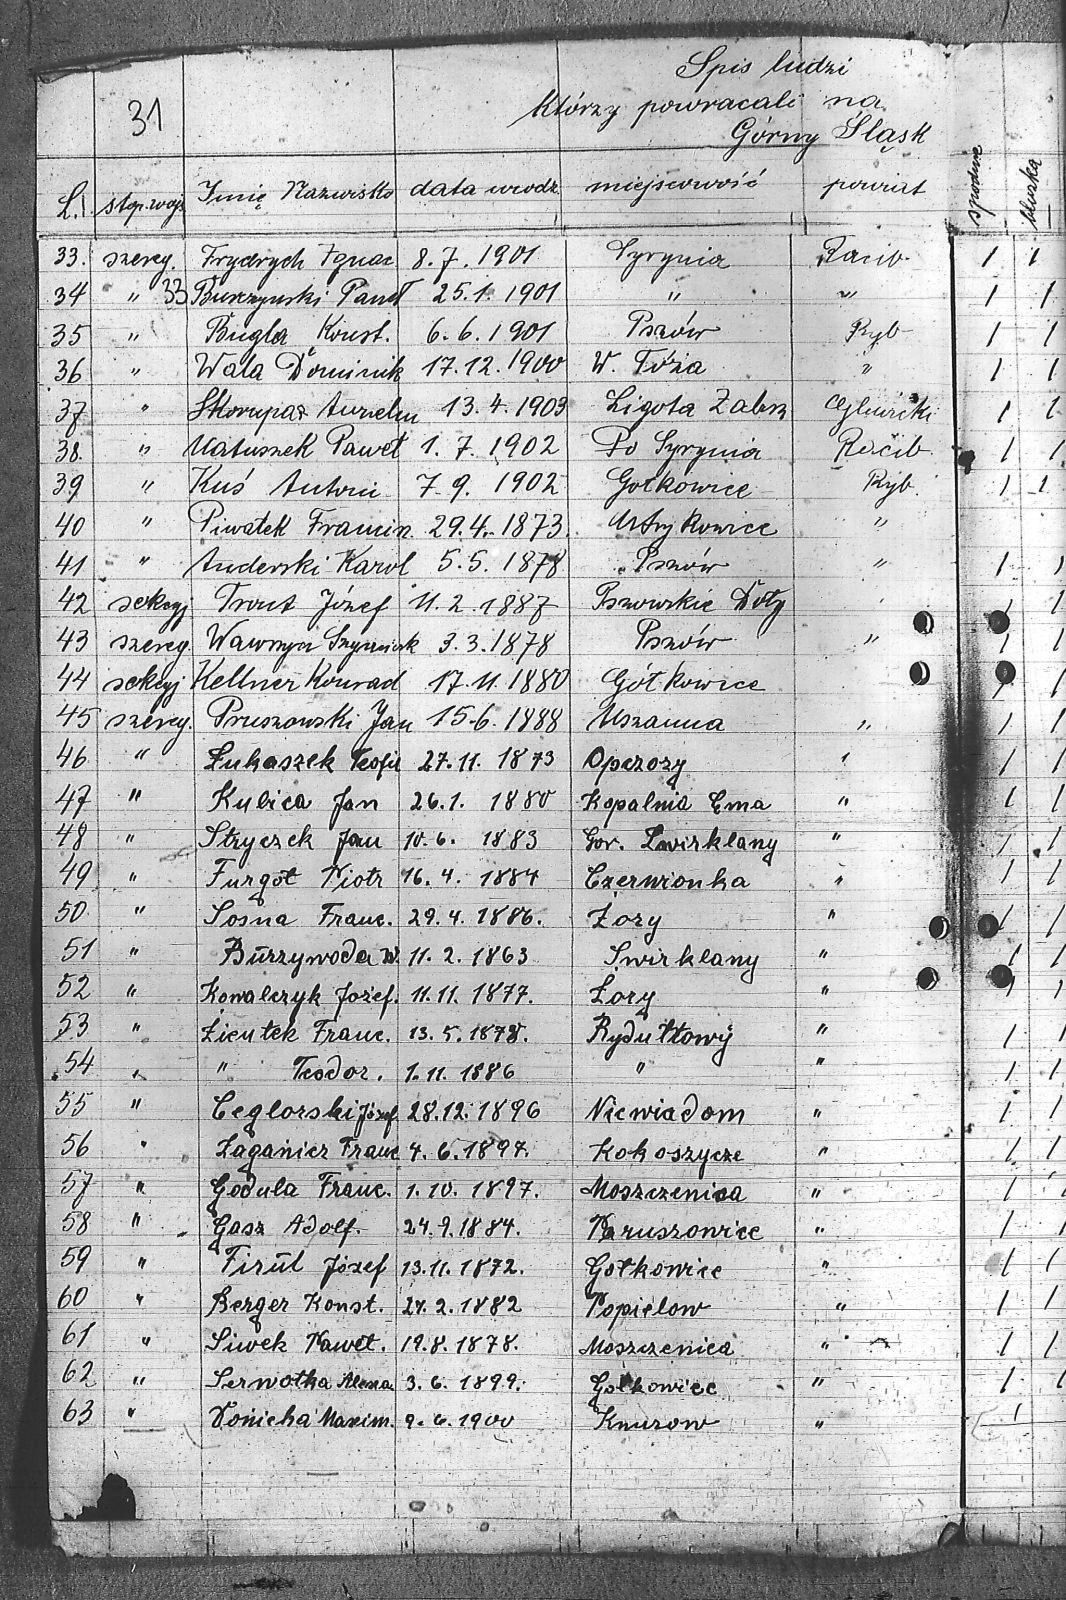 Spis ludzi
31
którzy powracali na
Górny Śląsk
L. stop. wojs. Imię Nazwisko data urodz. miejscowość powiat spodnie bluzka
33. szereg. Frydrych Ignac 8.7.1901 Syrynia Racib. 1 1
34 " 33 Burczynski Paweł 25.1.1901 " " 1 1
35 " Bugla Konst. 6.6.1901 Pszów Ryb 1 1
36 " Wala Dominik 17.12.1900 W. " 1 1
37 " 13.4.1903 Ligota Zabrz Gliwicki 1 1
38. " Matuszek Paweł 1.7.1902 Po Syrynia Racib. 1 1
39 " Kuś Antoni 7.9.1902 Gołkowice Ryb. 1 1
40 " Piwatek Francis 29.4.1873. "
41 " Anderski Karol 5.5.1878 Pszów " 1 1
42 sekcyj Trout Józef 11.2.1887 Pszowskie Doły 1 1
43 szereg. Wawrzyn 3.3.1878 Pszów " 1 1
44 sekcyj Kellner Konrad 17.11.1880 Gółkowice 1 1
45 szereg. Pruszowski Jan 15.6.1888 Mszanna " 1 1
46 " Łukaszek Teofil 27.11.1873 1 1
47 " Kubica Jan 26.1.1880 Kopalnia Ema " 1 1
48 " Stryczek Jan 10.6.1883 Gor. Zwirklany " 1 1
49 " Furgoł Piotr 16.4.1884 Czerwionka " 1 1
50 " Sosna Franc. 29.4.1886. Żory " 1 1
51 " Burzywoda W. 11.2.1863 Swirklany " 1 1
52 " Kowalczyk Jozef. 11.11.1877. Żory " 1 1
53 " Zientek Franc. 13.5.1878. Rydułtowy " 1 1
54 " " Teodor. 1.11.1886 " " 1 1
55 " Ceglorski Józef 28.12.1896 Niewiadom " 1 1
56 " Franc 4.6.1897. Kokoszycze " 1 1
57 " Godula Franc. 1.10.1897. Moszczenica " 1 1
58 " Gasz Adolf. 24.9.1884. Paruszowice " 1 1
59 " Firut Józef 13.11.1872. Gołkowice " 1 1
60 " Berger Konst. 27.2.1882 Popielow " 1 1
61 " Siwek Paweł. 19.8.1878. Moszczenica " 1 1
62 " Serwotka 3.6.1899. Gołkowice " 1 1
63 " Maxim. 9.6.1900 Knurow " 1